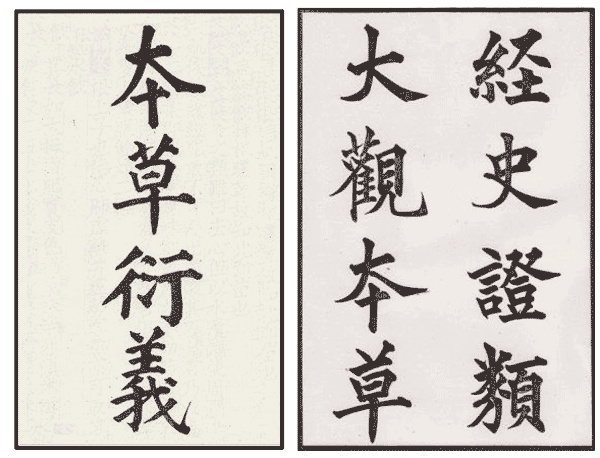 経史證類
大觀本草
本草衍義